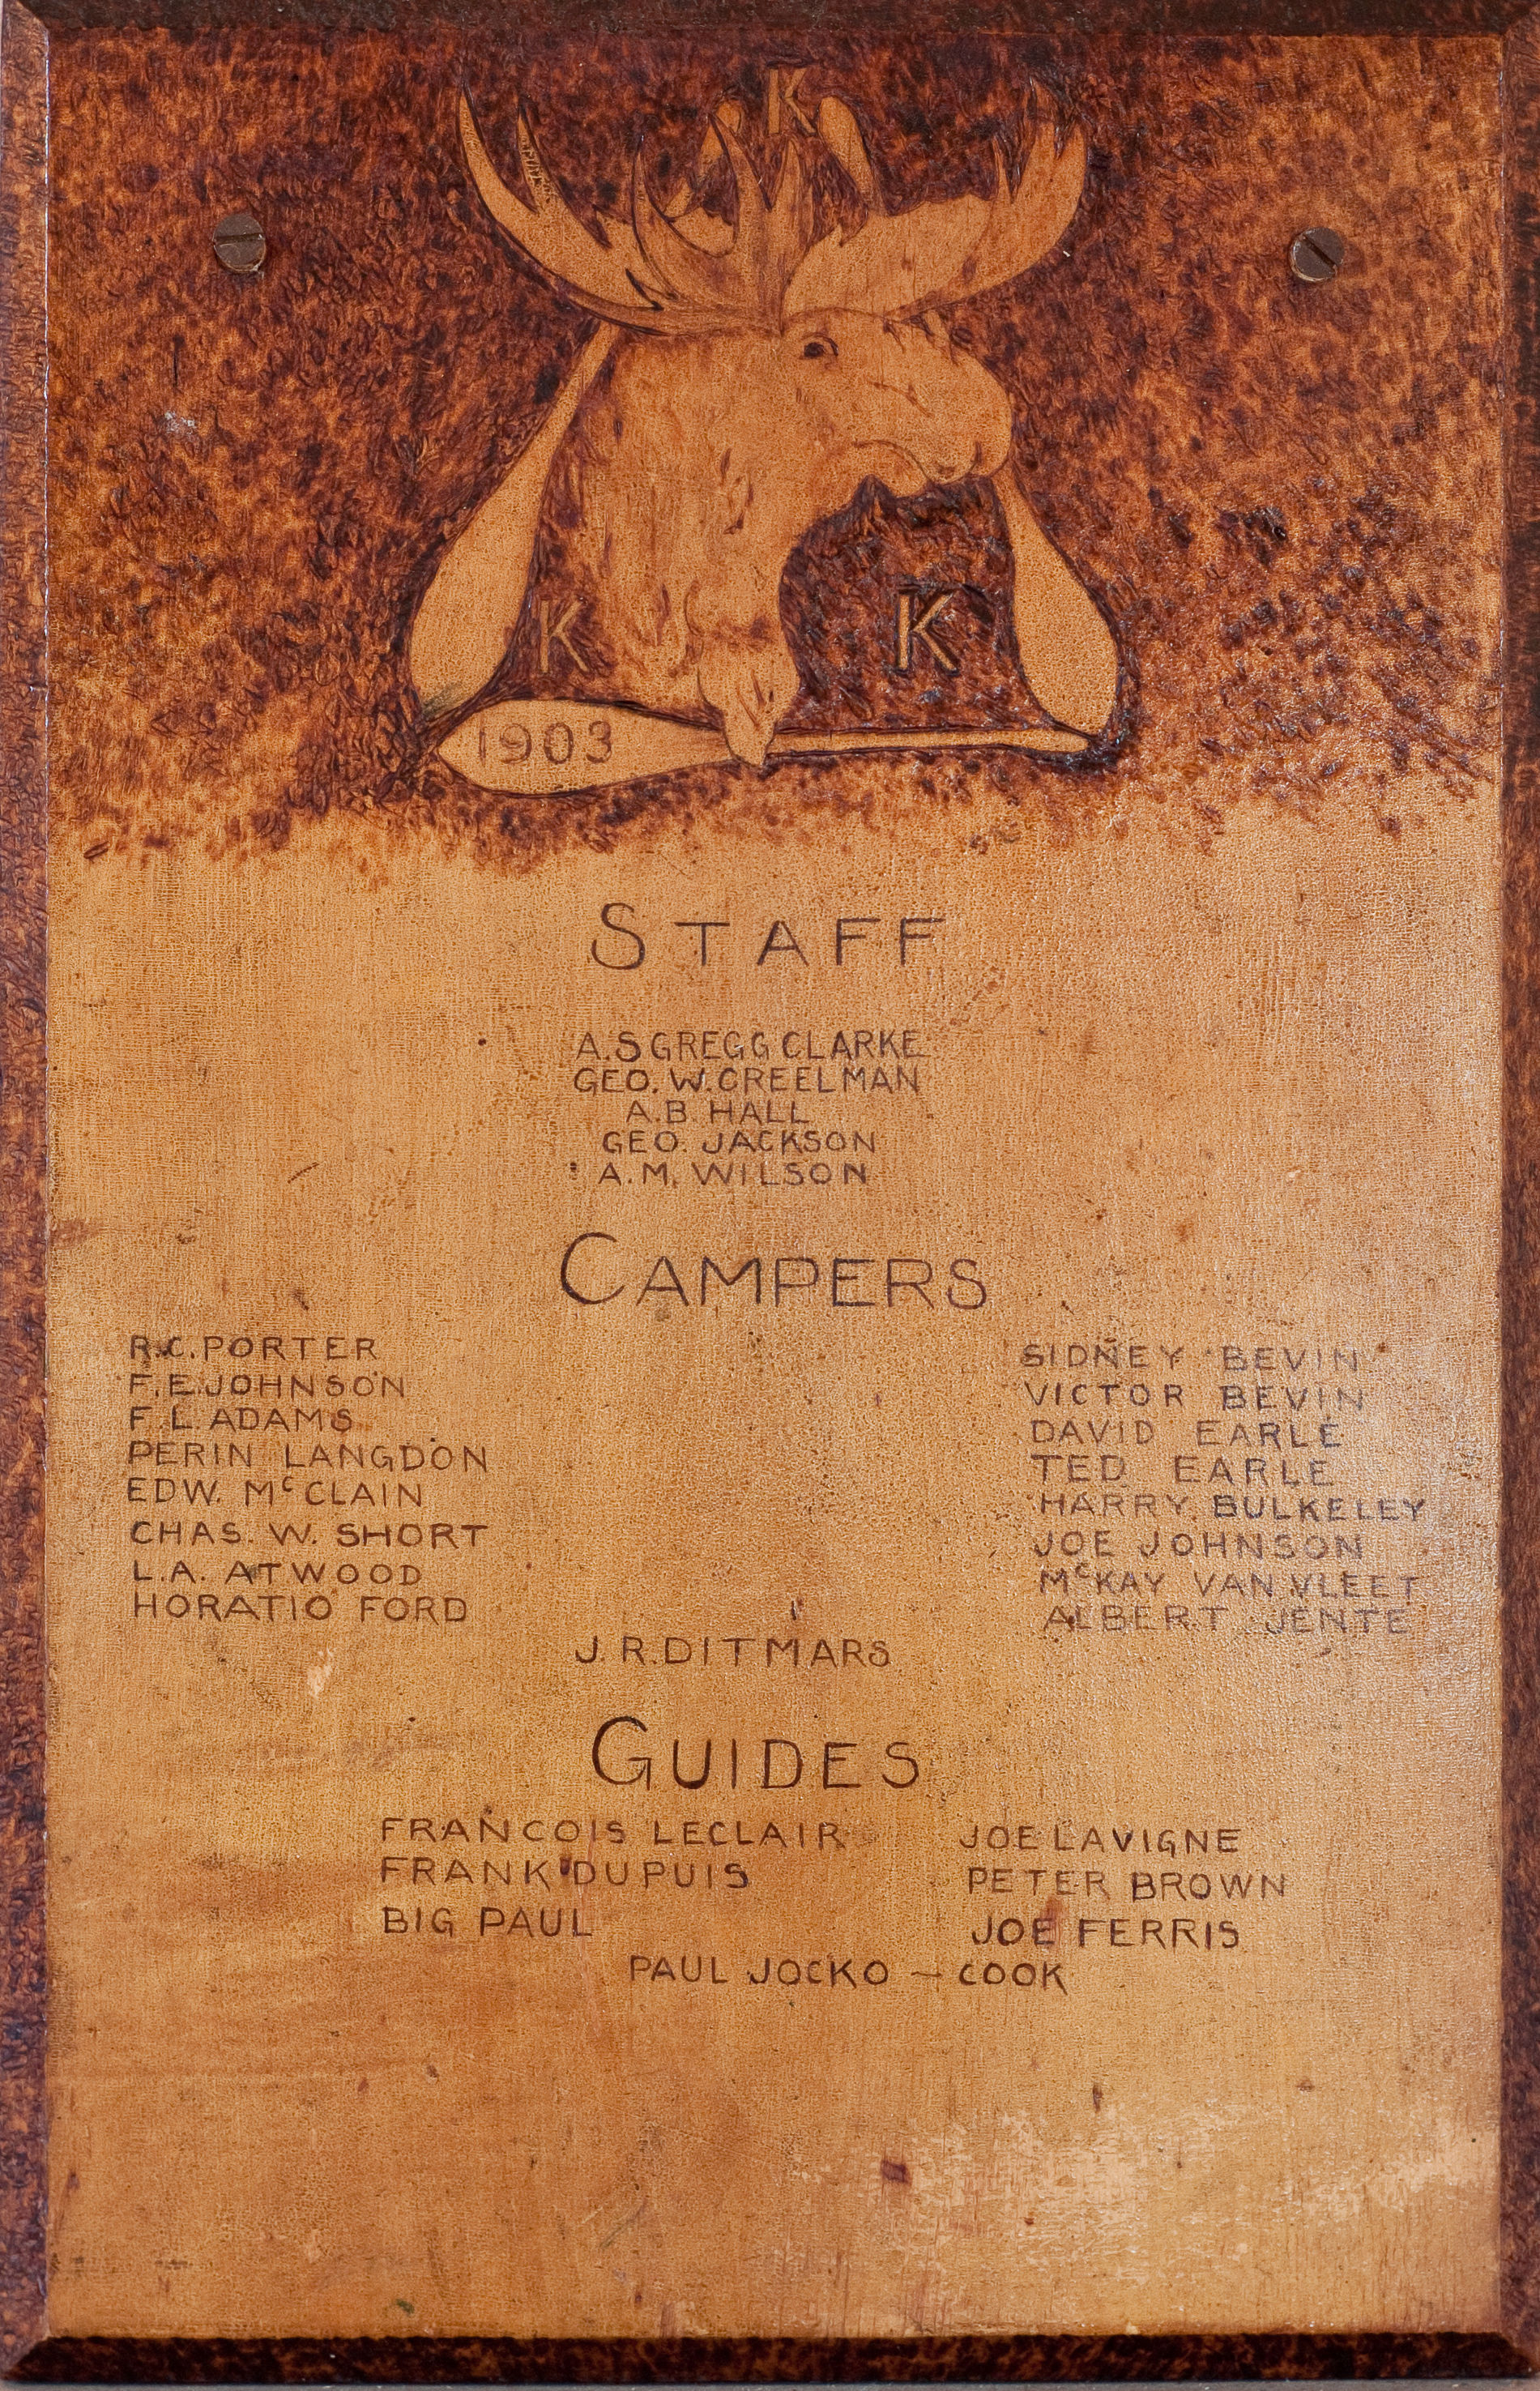 K
K K
1903
STAFF
A.S GREGG CLARKE
GEO. W. CREELMAN
A.B. HALL
GEO. JACKSON
A.M. WILSON
CAMPERS
R.C. PORTER
F.E. JOHNSON
F.L. ADAMS
PERIN LANGDON
EDW. McCLAIN
CHAS. W. SHORT
L.A. ATWOOD
HORATIO FORD
SIDNEY BEVIN
VICTOR BEVIN
DAVID EARLE
TED EARLE
HARRY BULKELEY
JOE JOHNSON
McKAY VAN VLEET
ALBERT JENTE
J.R. DITMARS
GUIDES
FRANCOIS LECLAIR
FRANK DUPUIS
BIG PAUL
JOE LAVIGNE
PETER BROWN
JOE FERRIS
PAUL JOCKO — COOK